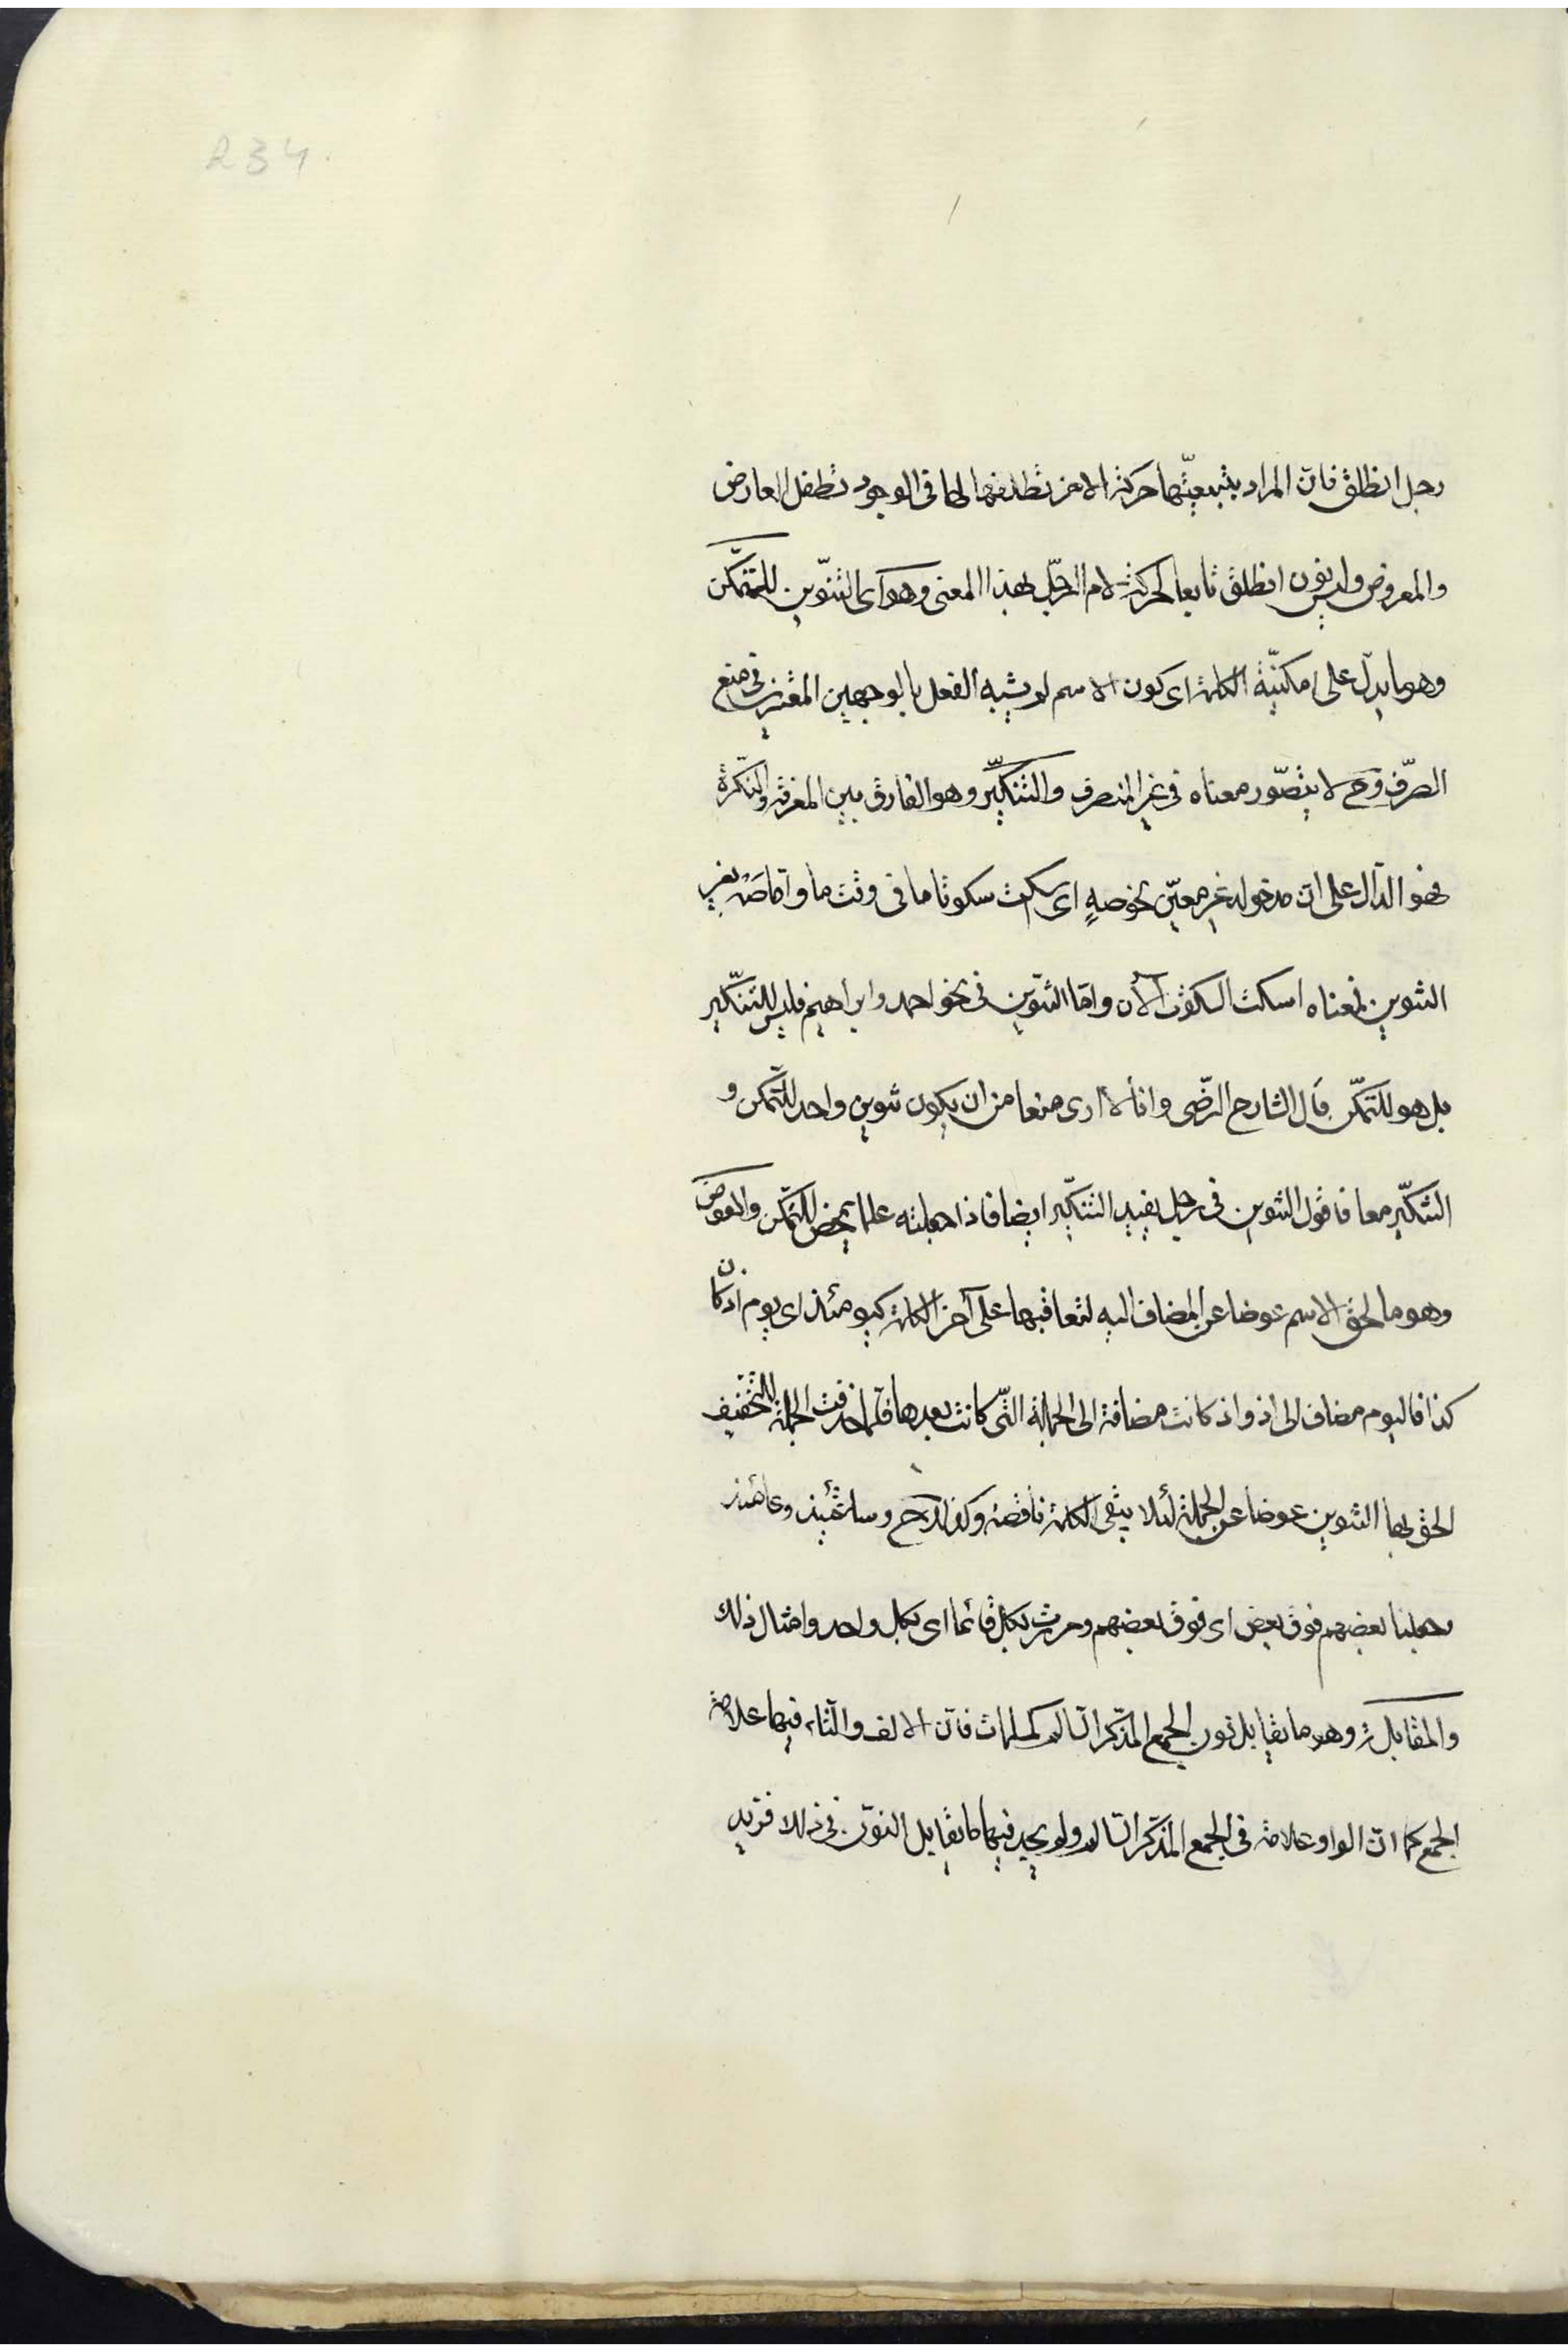 234
رجل انطلق فان المراد بتبعيتها حركة الاخر تطفلها لها فى الوجود تطفل العارض
والمعروض وليس نون انطلق تابعا لحركة لام الرجل بهذا المعنى وهو اى التنوين للتمكن
وهو ما يدل على امكنية الكلمة اى كون الاسم لم يشبه الفعل بالوجهين المعتبرين فى منع
الصرف وح لا يتصور معناه فى غير المنصرف والتنكير وهو الفارق بين المعرفة والنكرة
فهو الدال على ان مدخوله غير معين نحو صهٍ اى اسكت سكوتا ما فى وقت ما واما صه بغير
التنوين فمعناه اسكت السكوت الآن واما التنوين فى نحو احمد وابراهيم فليس للتنكير
بل هو للتمكن قال الشارح الرضى وانا لا ارى منعا من ان يكون تنوين واحد للتمكن و
التنكير معا فاقول التنوين فى رجل يفيد التنكير ايضا فاذا جعلته علما تمحض للتمكن والعوض
وهو ما لحق الاسم عوضا عن المضاف اليه لتعاقبها على آخر الكلمة كيومئذ اى يوم اذ كان
كذا فاليوم مضاف الى اذ واذ كانت مضافة الى الجملة التى كانت بعدها فلما حذفت الجملة للتخفيف
الحق بها التنوين عوضا عن الجملة لئلا يبقى الكلمة ناقصة وكذلك ح وساعتئذ وعامئذ
وجعلنا بعضهم فوق بعض اى فوق بعضهم ومررت بكل قائما اى بكل واحد وامثال ذلك
والمقابلة وهو ما يقابل نون الجمع المذكر السالم كمسلمات فان الالف والتاء فيها علامة
الجمع كما ان الواو علامة فى الجمع المذكر السالم ولم يجد فيها ما يقابل النون فى ذلك فزيد